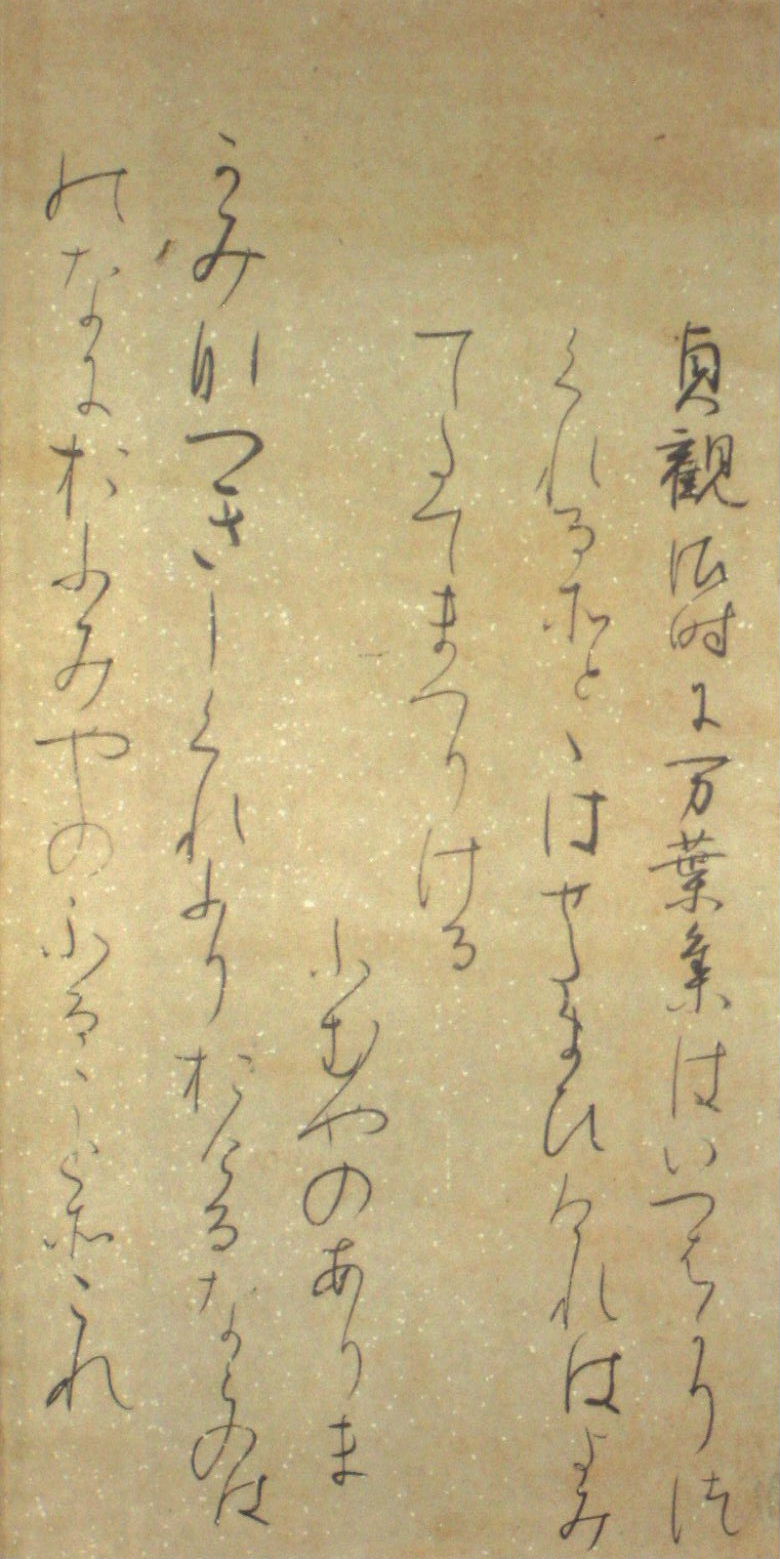 貞觀御時に万葉集はいつはかりつ
くれるそとゝはせたまひけれはよみ
てたてまつりける
ふむやのありま
かみなつきしくれふりおけるならのは
のなにおふみやのふることそこれ